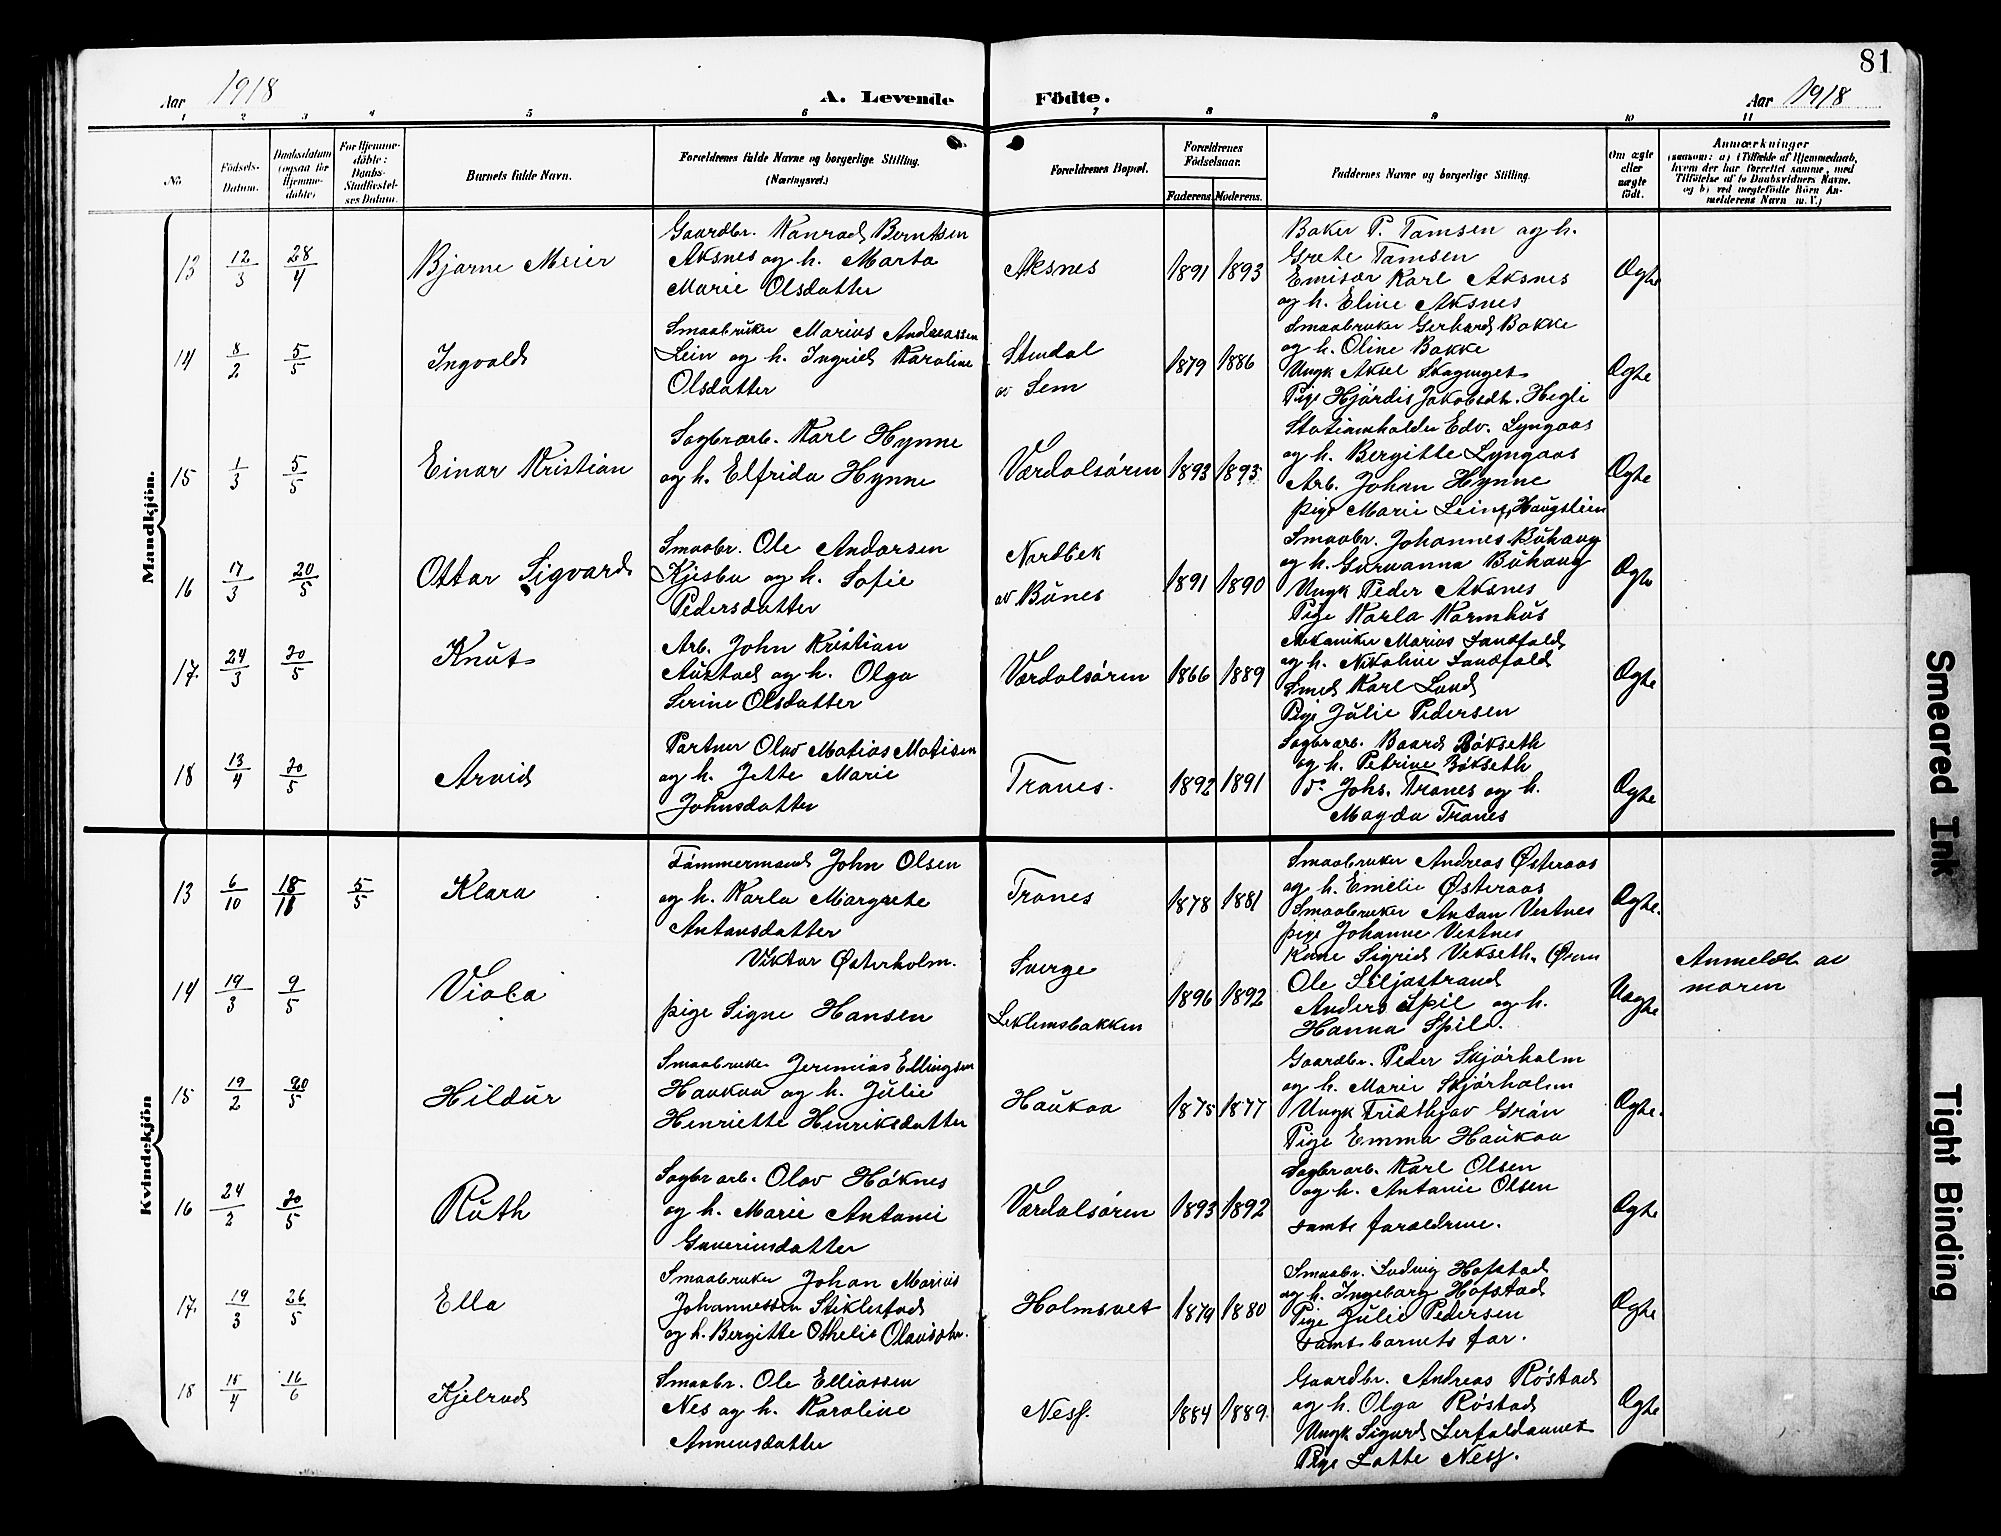 81
Aar 1918
A. Levende Födte.
Aar 1918
1 2 3 4 5 6 7 8 9 10 11
No
Födsels-Datum.
Daabsdatum (ogsaa for Hjemme-döbte).
For Hjemme-döbte: Daabs-Stadfæstel-ses Datum.
Barnets fulde Navn.
Forældrenes fulde Navne og borgerlige Stilling. (Næringsvei.)
Forældrenes Bopæl.
Forældrenes Födselsaar.
Faderens. Moderens.
Faddernes Navne og borgerlige Stilling.
Om ægte eller uægte födt.
Anmærkninger
(saasom: a) i Tilfælde af Hjemmedaab, hvem der har forrettet samme, med Tilföielse af to Daabsvidners Navne, og b) ved uægtefödte Börn An-melderens Navn m. V.)
Mandkjön.
13 12/3 28/4 Bjarne Meier
Gaardbr. Konrad Berntsen
Aksnes og h. Marta
Marie Olsdatter
Aksnes 1891 1893
Baker P. Tamsen og h.
Grete Tamsen
Emisær Karl Aksnes
og h. Eline Aksnes
Ægte
14 8/2 5/5 Ingvald
Smaabruker Marius Andreassen
Lein og h. Ingrid Karoline
Olsdatter
Stendal
av Sem
1879 1886
Smaabruker Gerhard Bakke
og h. Oline Bakke
Ungk Aksel
Pige Hjördis Jakobsdtr. Hegli
Ægte
15 1/3 5/5 Einar Kristian
Sagbrarb. Karl Hynne
og h. Elfrida Hynne
Værdalsören 1893 1895
Stationsholder Edv. Lyngaas
og h. Bergitte Lyngaas
Arb. Johan Hynne
pige Marie Lein, Haugslein
Ægte
16 17/3 20/5 Ottar Sigvard
Smaabr. Ole Andorsen
Kjesbu og h. Sofie
Pedersdatter
Nordbek
av Bunes
1891 1890
Smaabr. Johannes Buhaug
og h. Buhaug
Ungk Peder Aksnes
Pige Karla Karmhus
Ægte
17. 24/3 20/5 Knut
Arb. John Kristian
Austad og h. Olga
Serine Olsdatter
Værdalsören 1866 1889
Mekaniker Marius Sandfald
og h. Nikoline Sandfald
Smed Karl Lund
Pige Julie Pedersen
Ægte
18 13/4 20/5 Arvid
Partner Olav Matias Matisen
og h. Jette Marie
Johnsdatter
Tranes. 1892 1891
Sagbrarb. Baard Bökseth
og h. Petrine Bökseth
do Johs. Tranes og h.
Magda Tranes
Ægte
Kvindekjön
13 6/10 18/11 5/5 Klara
Tömmermand John Olsen
og h. Karla Margrete
Antonsdatter
Tranes 1878 1881
Smaabruker Andreas Østeraas
og h. Emelie Østeraas
Smaabruker Anton Vestnes
pige Johanne Vestnes
Ægte.
14 19/3 9/5 Viola
Viktor Østerholm.
pige Signe Hansen
Sverge
Leklemsbakken
1896 1892
Kone Sigrid Vekseth, Øren
Ole Liljastrand
Anders Spil og h.
Hanna Spil.
Uægte
Anmeldt av
moren
15 19/2 20/5 Hildur
Smaabruker Jeremias Ellingsen
Haukaa og h. Julie
Henriette Henriksdatter
Haukaa 1875 1877
Gaardbr. Peder Skjörholm
og h. Marie Skjörholm
Ungk Fridthjov Grön
Pige Emma Haukaa
Ægte.
16 24/2 20/5 Ruth
Sagbrarb. Olav Höknes
og h. Marie Antonie
Guneriusdatter
Værdalsören 1893 1892
Sagbrarb. Karl Olsen
og h. Antonie Olsen
samt foraldrene.
Ægte
17. 19/3 26/5 Ella
Smaabruker Johan Marius
Johannessen Stiklestad
og h. Bergitte Othelie Olausdtr.
Holmsvet 1879 1880
Smaabr. Ludvig Hofstad
og h. Ingeborg Hofstad
Pige Julie Pedersen
samt barnets far.
Ægte
18 15/4 16/6 Kjelrad
Smaabr. Ole Elliassen
Nes og h. Karoline
Annensdatter
Ness. 1884 1889.
Gaardbr. Andreas Röstad
og h. Olga Röstad
Ungk Sigurd
Pige Lotte Ness.
Ægte
Smeared Ink
Tight Binding